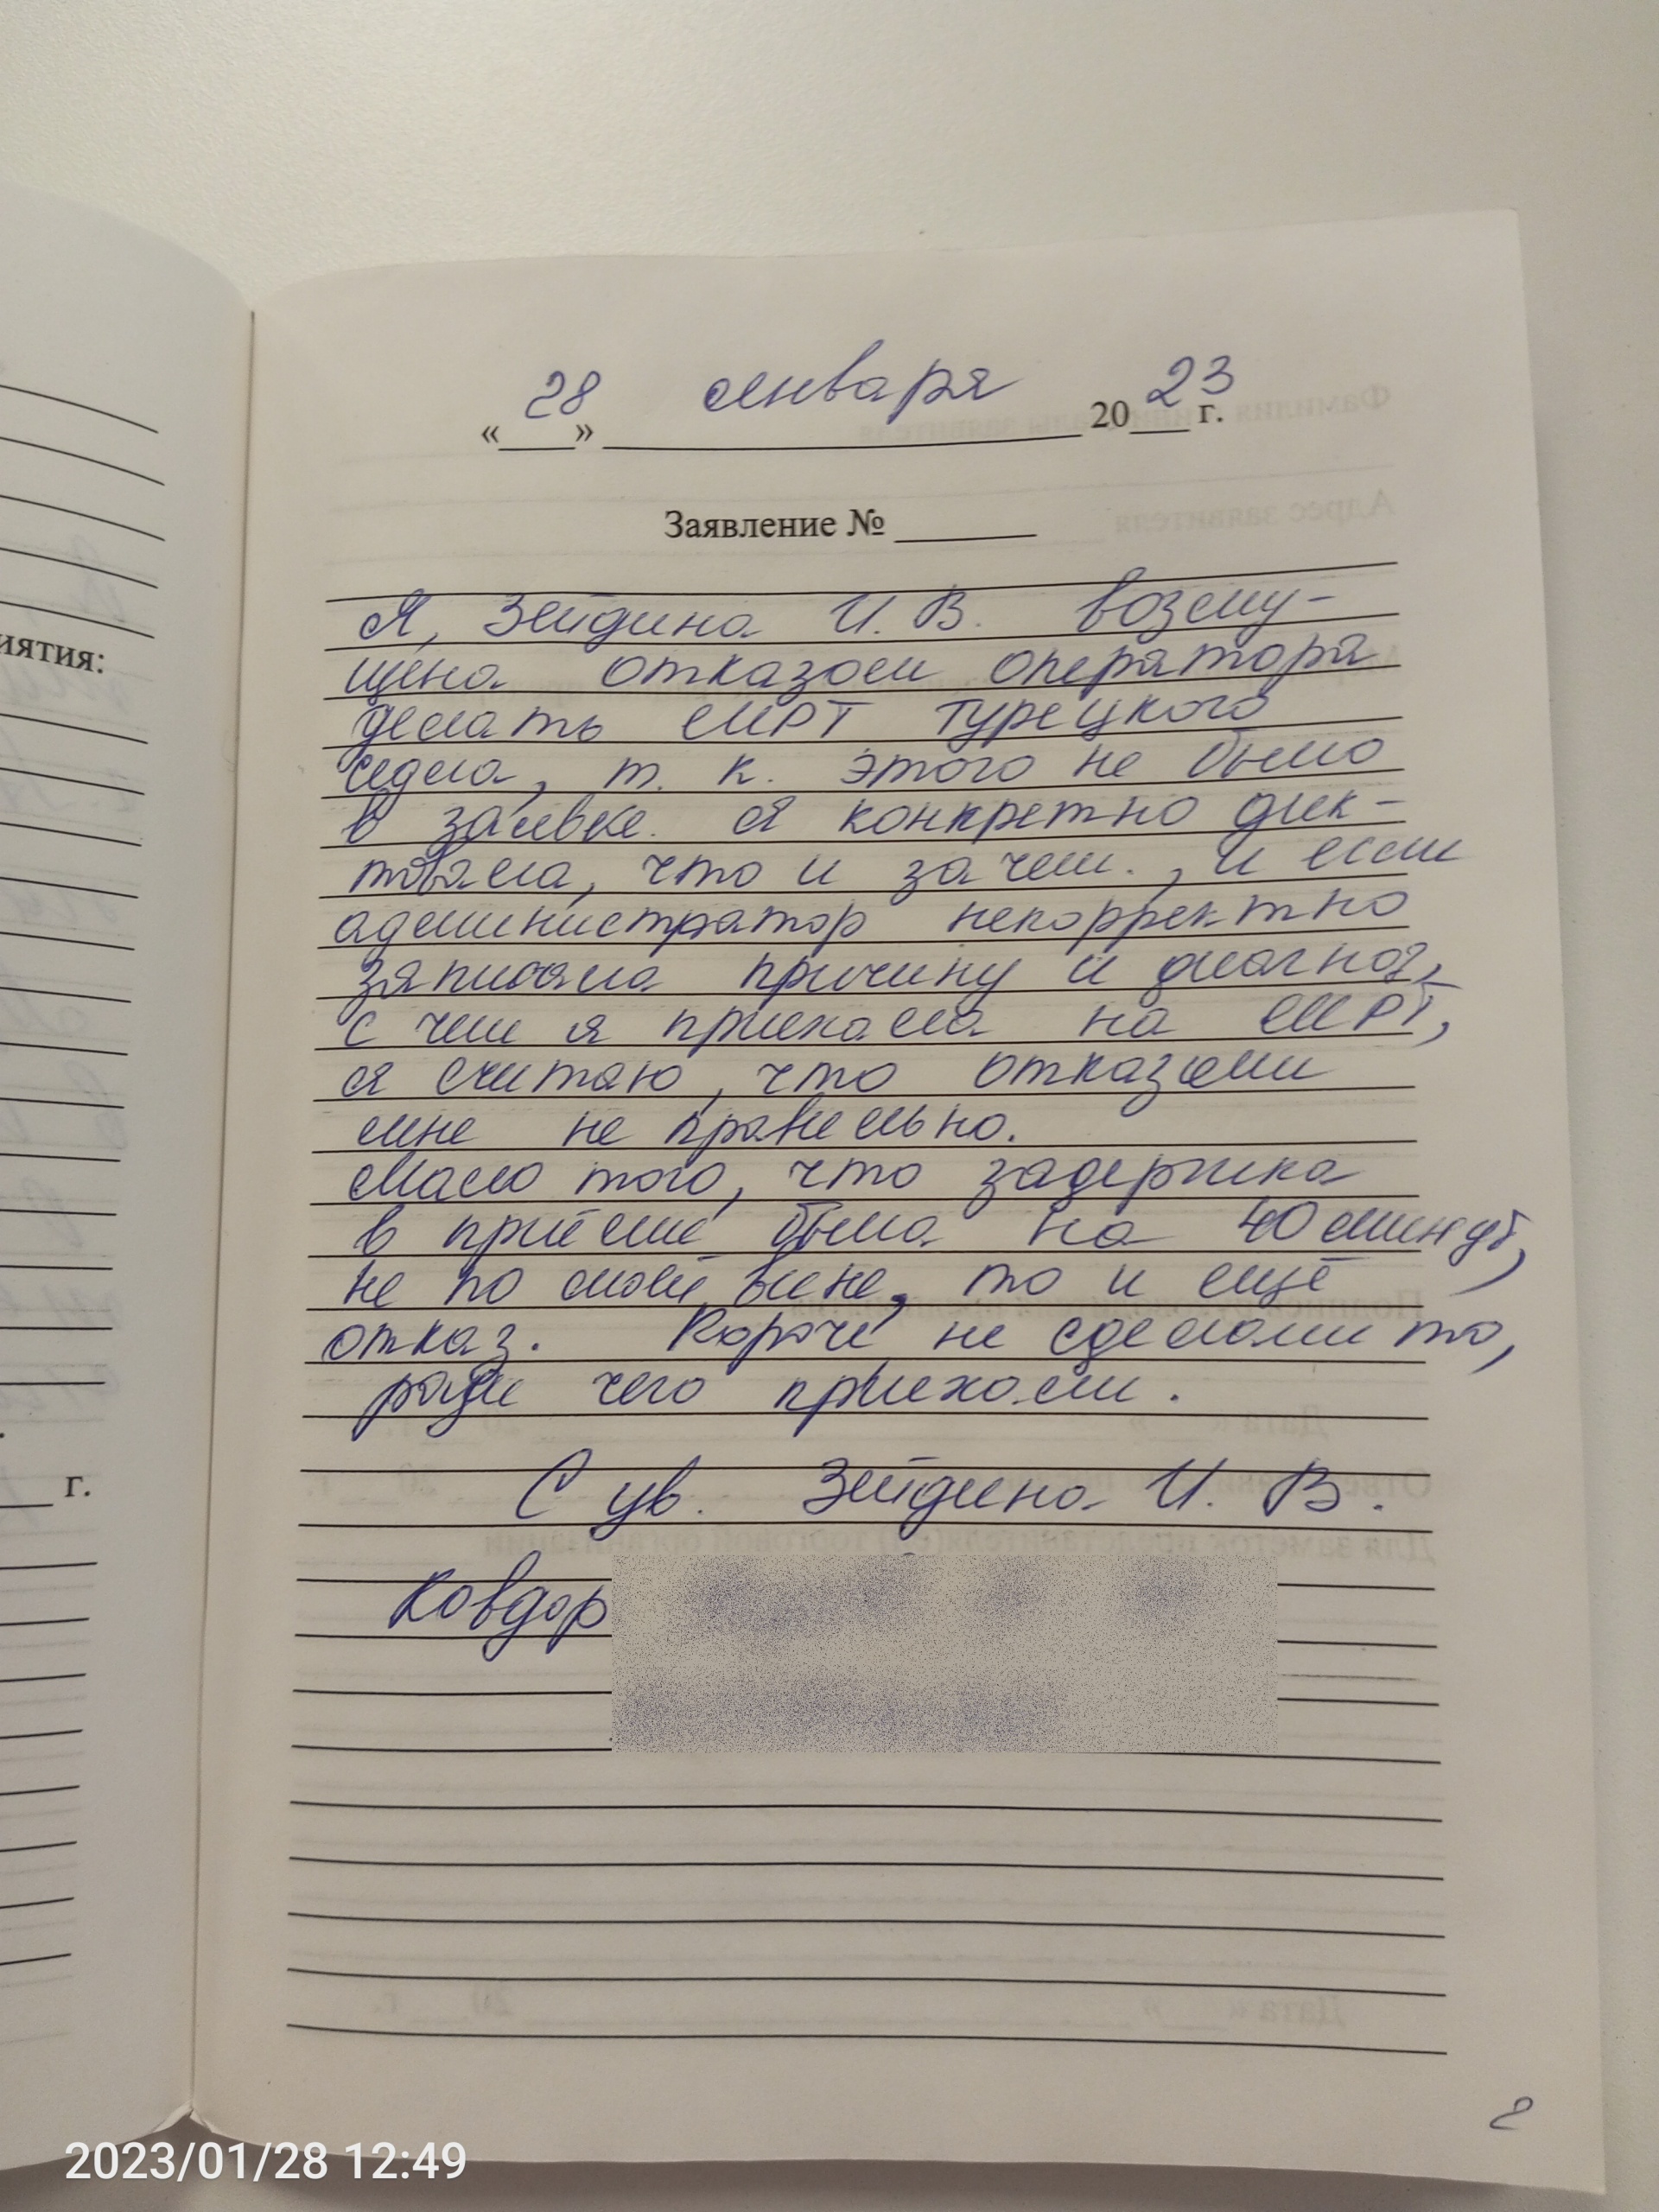 иятия:
г.
«28» января 2023 г.
Заявление № ______
Я, Зейдина И. В. возму-
щена отказом оператора
делать МРТ турецкого
седла, т. к. этого не было
в заявке. Я конкретно дик-
товала, что и зачем., и если
администратор некорректно
записала причину и диагноз,
с чем я приехала на МРТ,
я считаю, что отказали
мне не правильно.
Мало того, что задержка
в приёме была на 40 минут,
не по моей вине, то и ещё
отказ. Короче не сделали то,
ради чего приехали.
С ув. Зейдина И. В.
Ковдор
2
2023/01/28 12:49